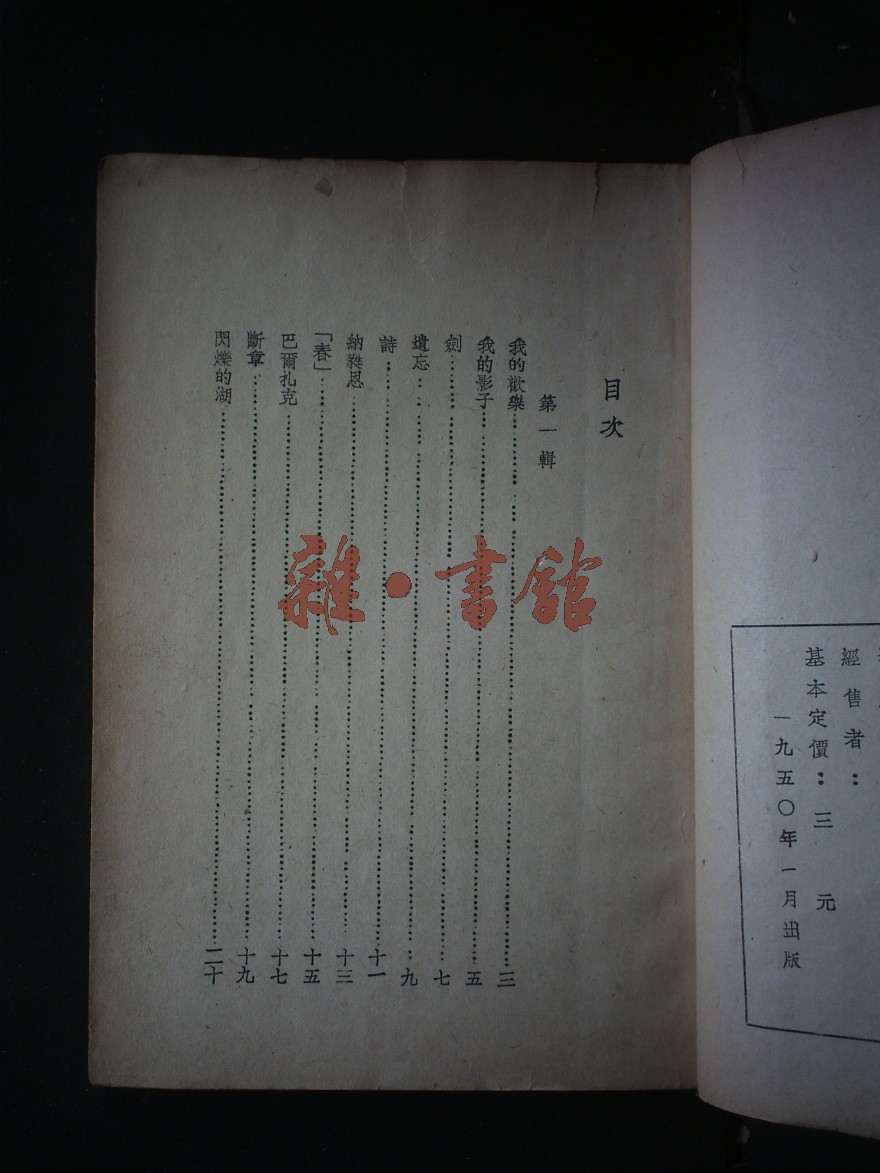 經售者：
基本定價：三元
一九五〇年一月出版
目次
第一輯
我的歡樂……三
我的影子……五
劍……七
遺忘……九
詩……十一
納蕤思……十三
「春」……十五
巴爾扎克……十七
斷章……十九
閃爍的湖……二十
雜·書館